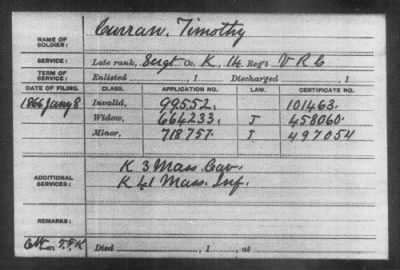 Curran, Timothy
NAME OF SOLDIER:
SERVICE: Late rank, Sergt Co. K, 14 Reg't V R C
TERM OF SERVICE: Enlisted , 1 Discharged , 1
DATE OF FILING. CLASS. APPLICATION NO. LAW. CERTIFICATE NO.
1866 Jany 8 Invalid, 99552. 101463.
Widow, 664233. J 458060.
Minor, 718757. J 497054
K 3 Mass. Cav.
ADDITIONAL SERVICES: K 41 Mass. Inf.
REMARKS:
Died , 1 , at